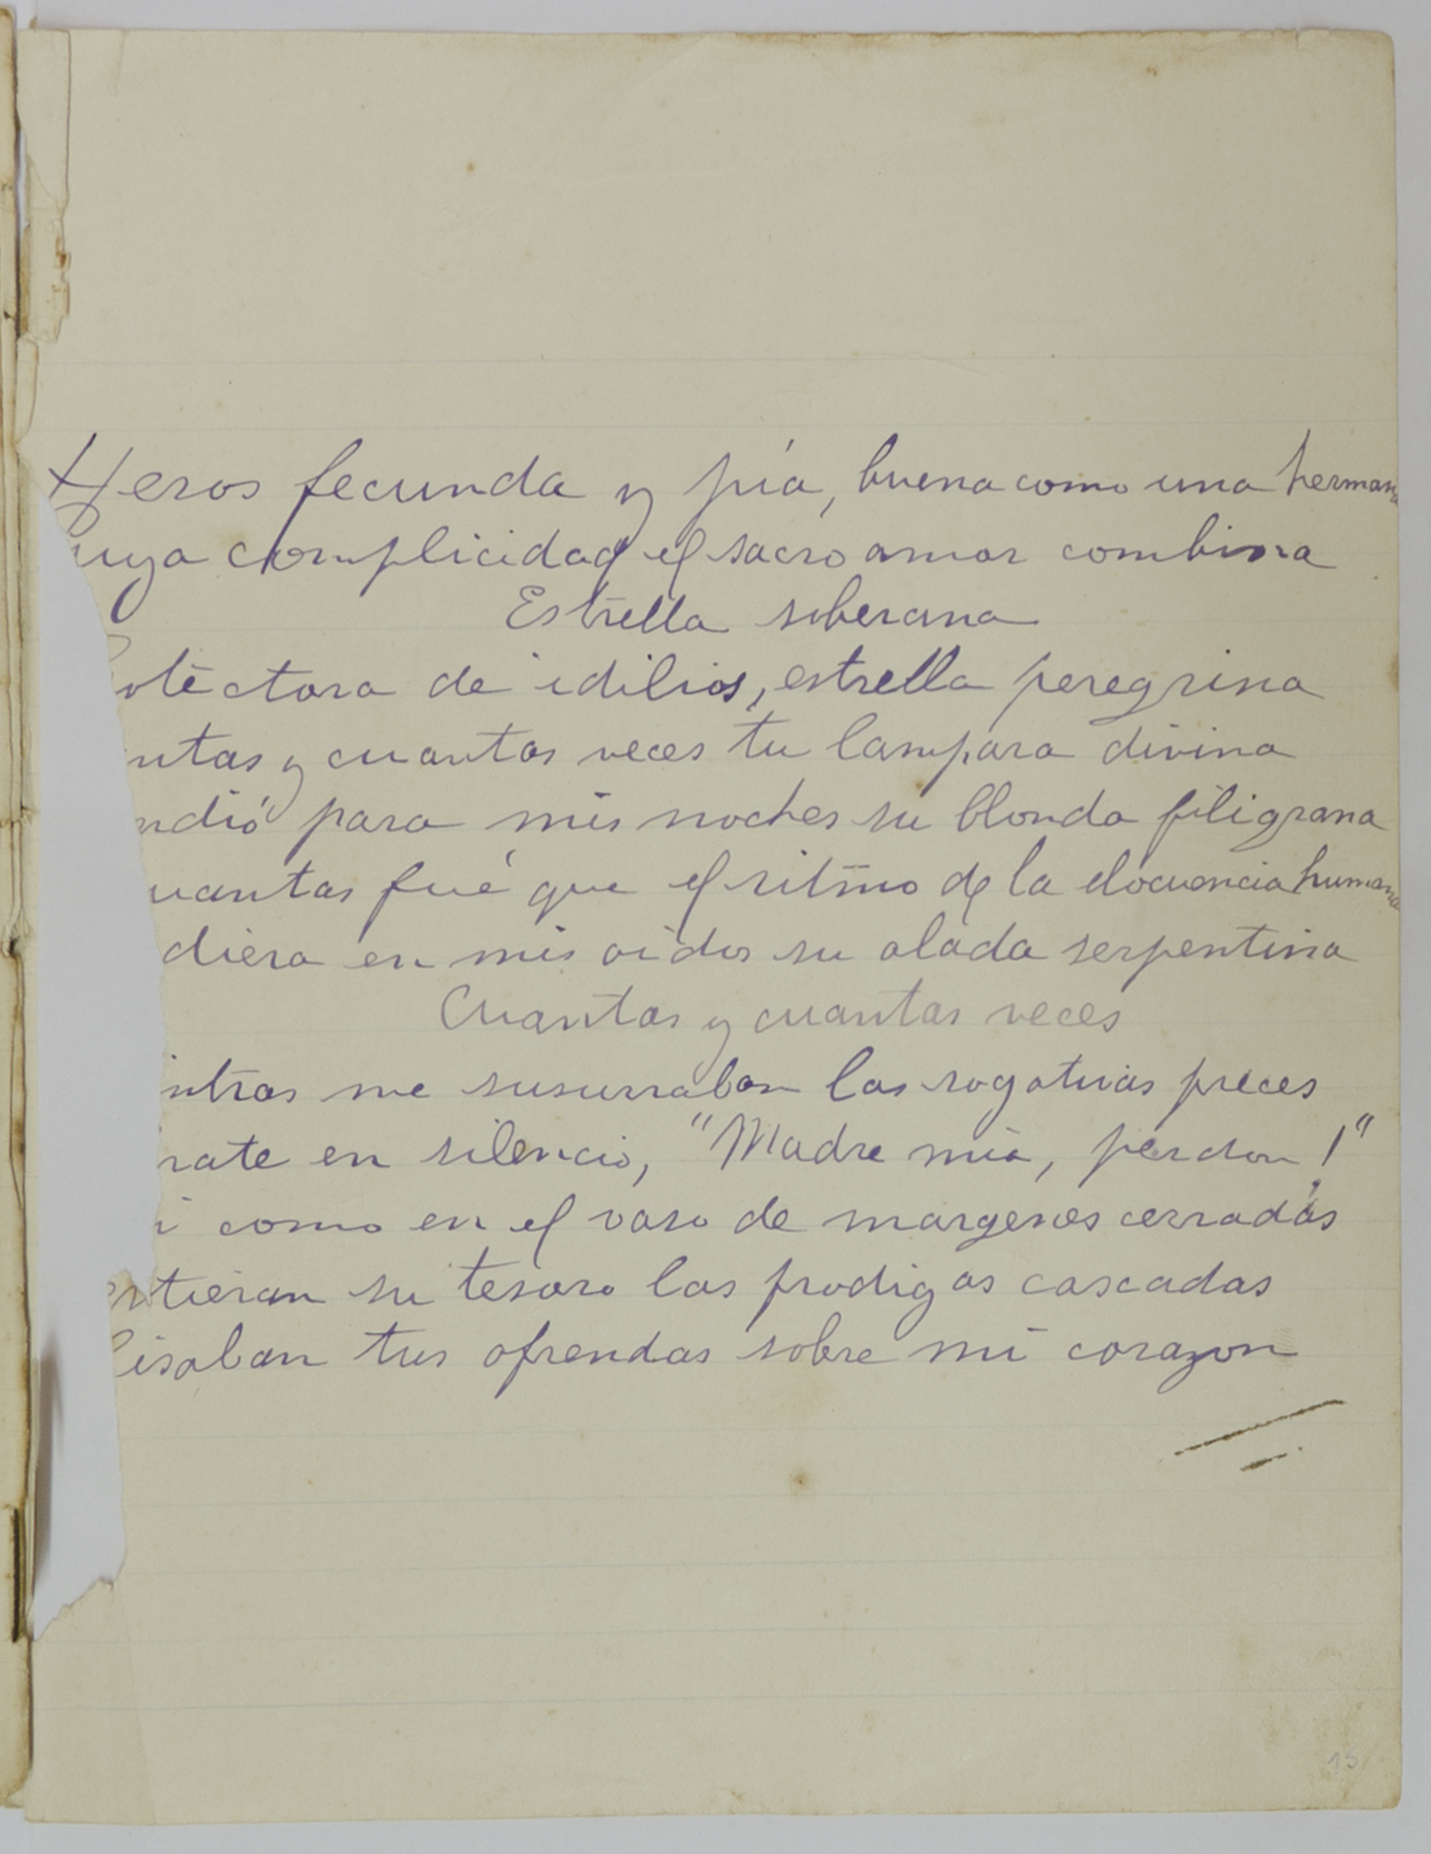 Heros fecunda y pía, buena como una hermana
cuya complicidad el sacro amor combina
Estrella soberana
otectora de idilios, estrella peregrina
ntas y cuantas veces tu lampara divina
ndió para mis noches su blonda filigrana
uantas fué que el ritmo de la elocuencia humana
diera en mis oidos su alada serpentina
Cuantas y cuantas veces
ntras me susurraban las rogativas preces
rate en silencio, "Madre mia, perdon!"
i como en el vaso de margenes cerradas
rtieran su tesoro las prodigas cascadas
isaban tus ofrendas sobre mi corazon
15